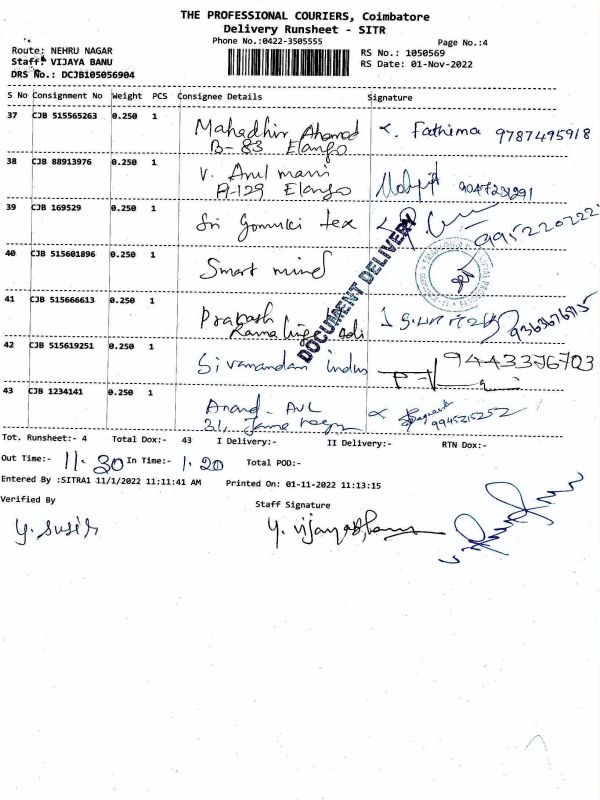 THE PROFESSIONAL COURIERS, Coimbatore
Delivery Runsheet - SITR
Phone No.:0422-3505555
Page No.:4
Route: NEHRU NAGAR
RS No.: 1050569
Staff: VIJAYA BANU
RS Date: 01-Nov-2022
DRS No.: DCJB105056904
S No Consignment No Weight PCS Consignee Details Signature
37 CJB 515565263 0.250 1 Mahadhir Ahamad Fathima 9787495918
B-83 Elango
38 CJB 88913976 0.250 1 V. Arul mani
A-129 Elango 9047231291
39 CJB 169529 0.250 1 Sri Gomuki tex
40 CJB 515601896 0.250 1 Smart mind
DOCUMENT DELIVERY
41 CJB 515666613 0.250 1 Prakash
Ramalinga
42 CJB 515619251 0.250 1 Sivanandan indus 9443376703
43 CJB 1234141 0.250 1 Anand - AVL
31, 9945215252
Tot. Runsheet:- 4 Total Dox:- 43 I Delivery:- II Delivery:- RTN Dox:-
Out Time:- 11.30 In Time:- 1.20 Total POD:-
Entered By :SITRA1 11/1/2022 11:11:41 AM Printed On: 01-11-2022 11:13:15
Verified By Staff Signature